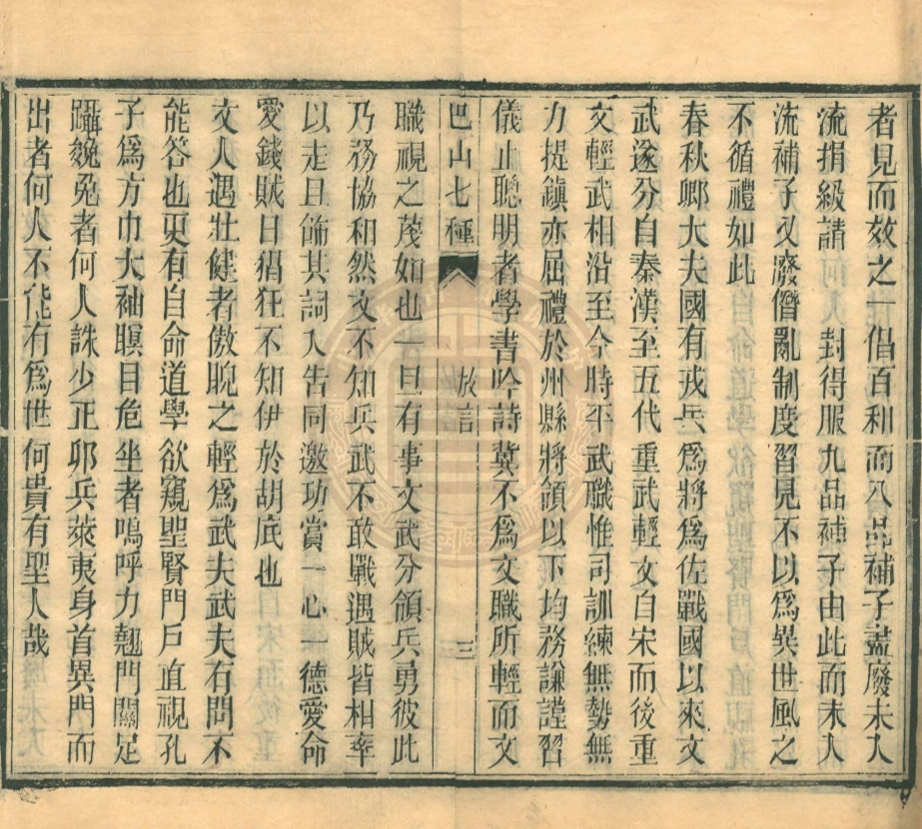 者見而效之一倡百和而八品補子盡廢未入
流捐級請 封得服九品補子由此而未入
流補子又廢僭亂制度習見不以爲異世風之
不循禮如此
春秋鄉大夫國有戎兵爲將爲佐戰國以來文
武遂分自秦漢至五代重武輕文自宋而後重
文輕武相沿至今時平武職惟司訓練無勢無
力提鎮亦屈禮於州縣將領以下均務謙謹習
儀止聰明者學書吟詩冀不爲文職所輕而文
巴山七種 放言 三
職視之蔑如也一旦有事文武分領兵勇彼此
乃務協和然文不知兵武不敢戰遇賊皆相率
以走且飾其詞入告同邀功賞一心一德愛命
愛錢賊日猖狂不知伊於胡底也
文人遇壯健者傲睨之輕爲武夫武夫有問不
能答也更有自命道學欲窺聖賢門戶直視孔
子爲方巾大袖瞑目危坐者嗚呼力翹門關足
躡㕙兔者何人誅少正卯兵萊夷身首異門而
出者何人不能有爲世何貴有聖人哉